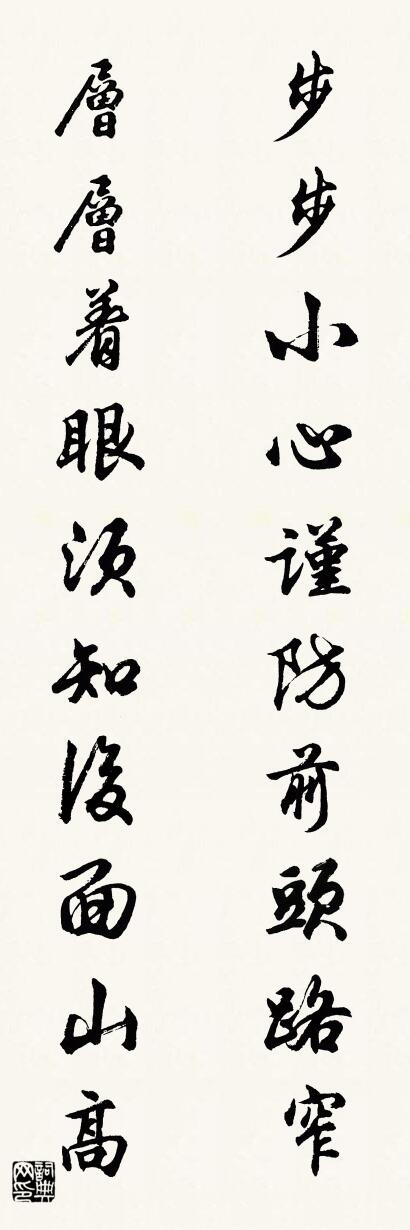 步步小心謹防前頭路窄
層層着眼須知後面山高
詞典网印